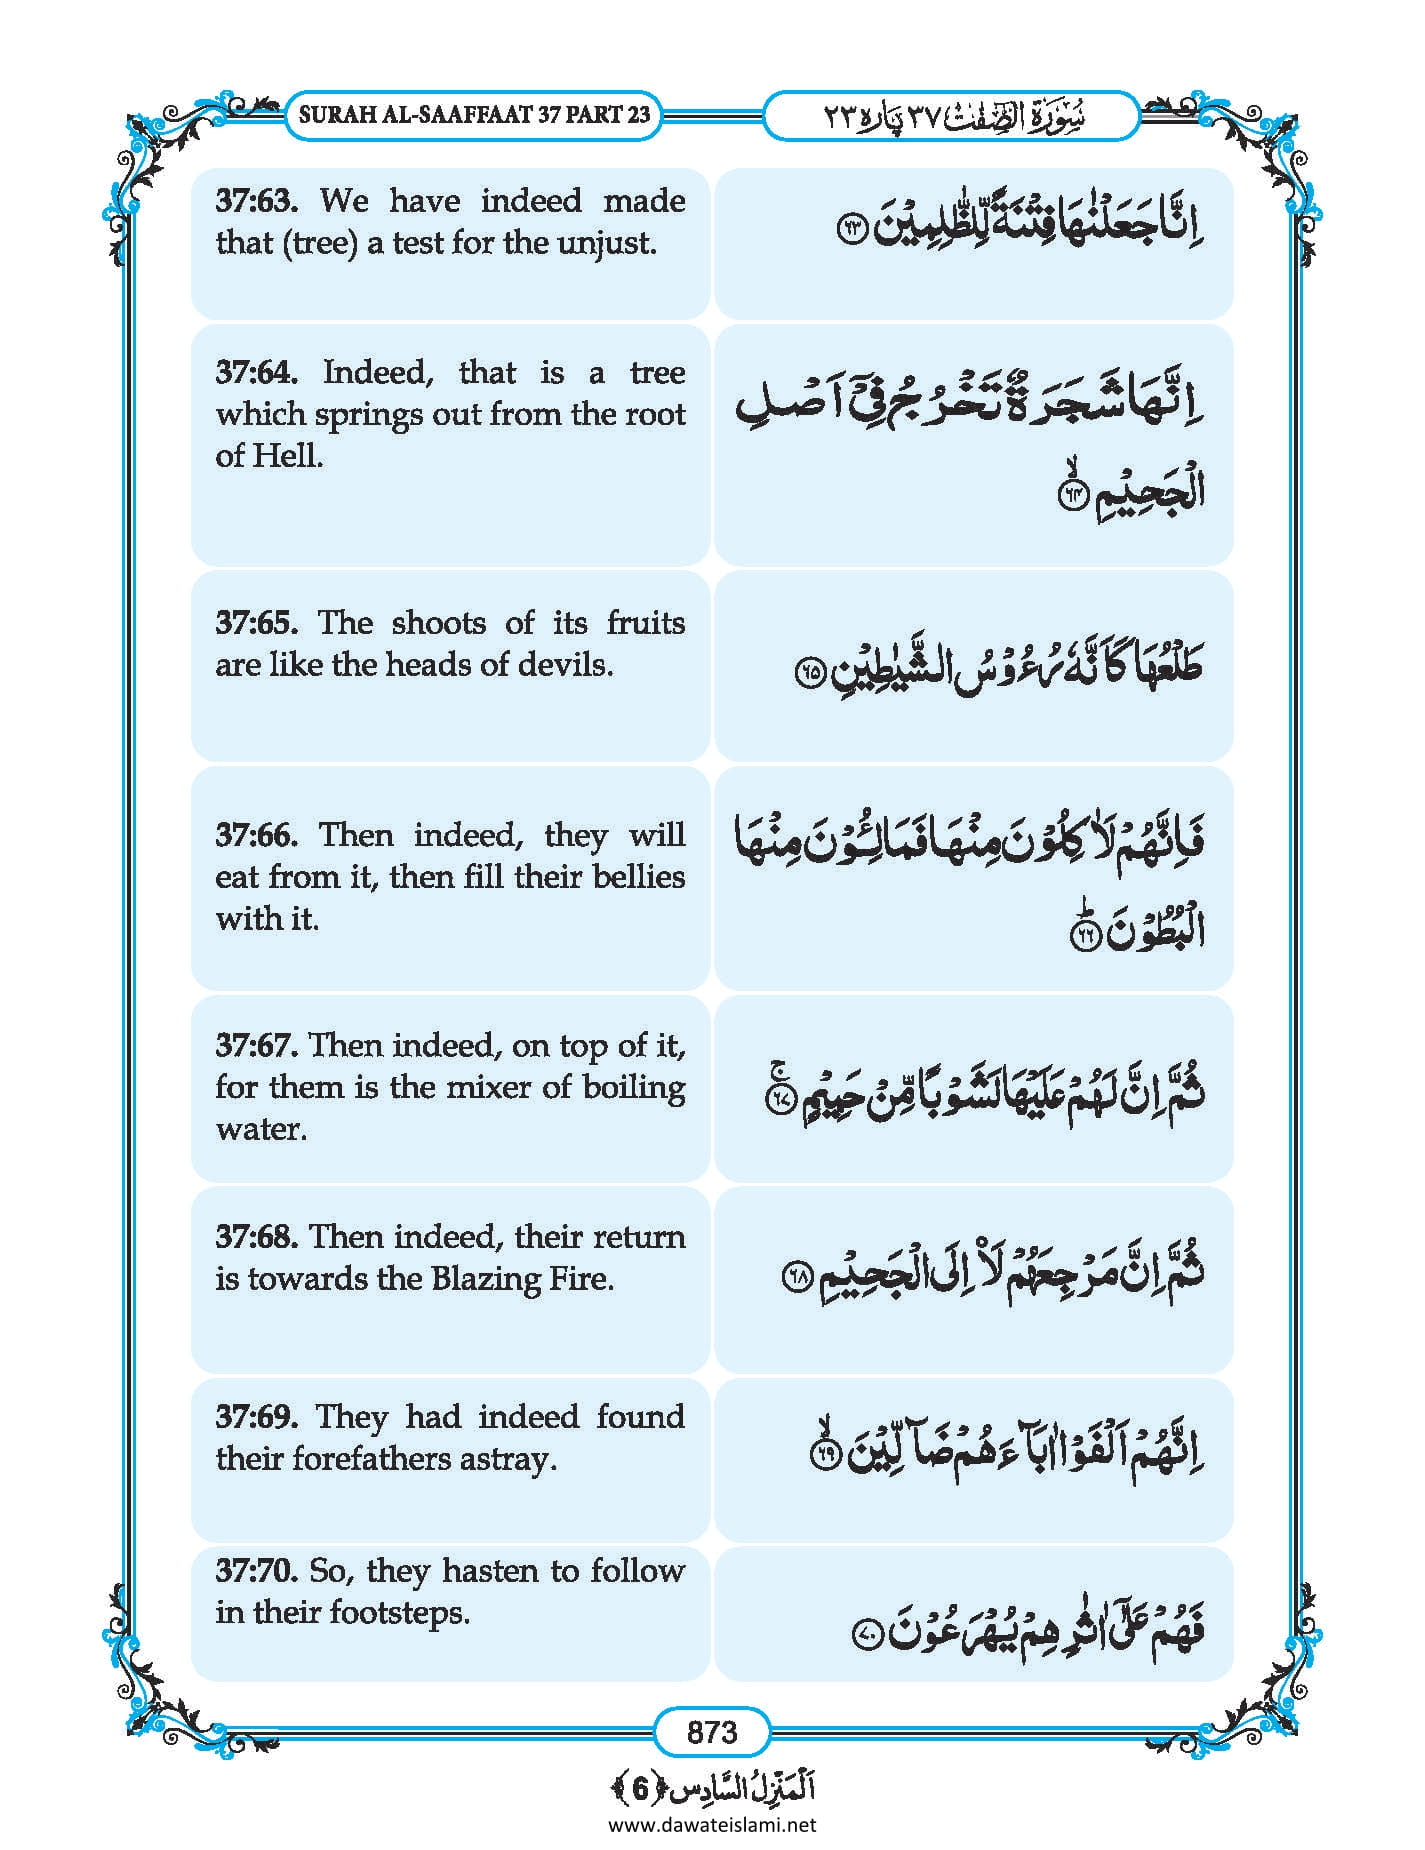 SURAH AL-SAAFFAAT 37 PART 23
سُوْرَةُ الصّٰٓفّٰت ٣٧ پاره ٢٣
37:63. We have indeed made
that (tree) a test for the unjust.
اِنَّا جَعَلْنٰهَا فِتْنَةً لِّلظّٰلِمِیْنَ ﴿۶۳﴾
37:64. Indeed, that is a tree
which springs out from the root
of Hell.
اِنَّهَا شَجَرَةٌ تَخْرُجُ فِیْۤ اَصْلِ
الْجَحِیْمِ ﴿ۙ۶۴﴾
37:65. The shoots of its fruits
are like the heads of devils.
طَلْعُهَا كَاَنَّهٗ رُءُوْسُ الشَّیٰطِیْنِ ﴿۶۵﴾
37:66. Then indeed, they will
eat from it, then fill their bellies
with it.
فَاِنَّهُمْ لَاٰكِلُوْنَ مِنْهَا فَمَالِـُٔوْنَ مِنْهَا
الْبُطُوْنَ ﴿ؕ۶۶﴾
37:67. Then indeed, on top of it,
for them is the mixer of boiling
water.
ثُمَّ اِنَّ لَهُمْ عَلَیْهَا لَشَوْبًا مِّنْ حَمِیْمٍ ﴿ۚ۶۷﴾
37:68. Then indeed, their return
is towards the Blazing Fire.
ثُمَّ اِنَّ مَرْجِعَهُمْ لَاۡ اِلَی الْجَحِیْمِ ﴿۶۸﴾
37:69. They had indeed found
their forefathers astray.
اِنَّهُمْ اَلْفَوْا اٰبَآءَهُمْ ضَآلِّیْنَ ﴿ۙ۶۹﴾
37:70. So, they hasten to follow
in their footsteps.
فَهُمْ عَلٰۤی اٰثٰرِهِمْ یُهْرَعُوْنَ ﴿۷۰﴾
873
اَلْمَنْزِلُ السَّادِس ﴿6﴾
www.dawateislami.net